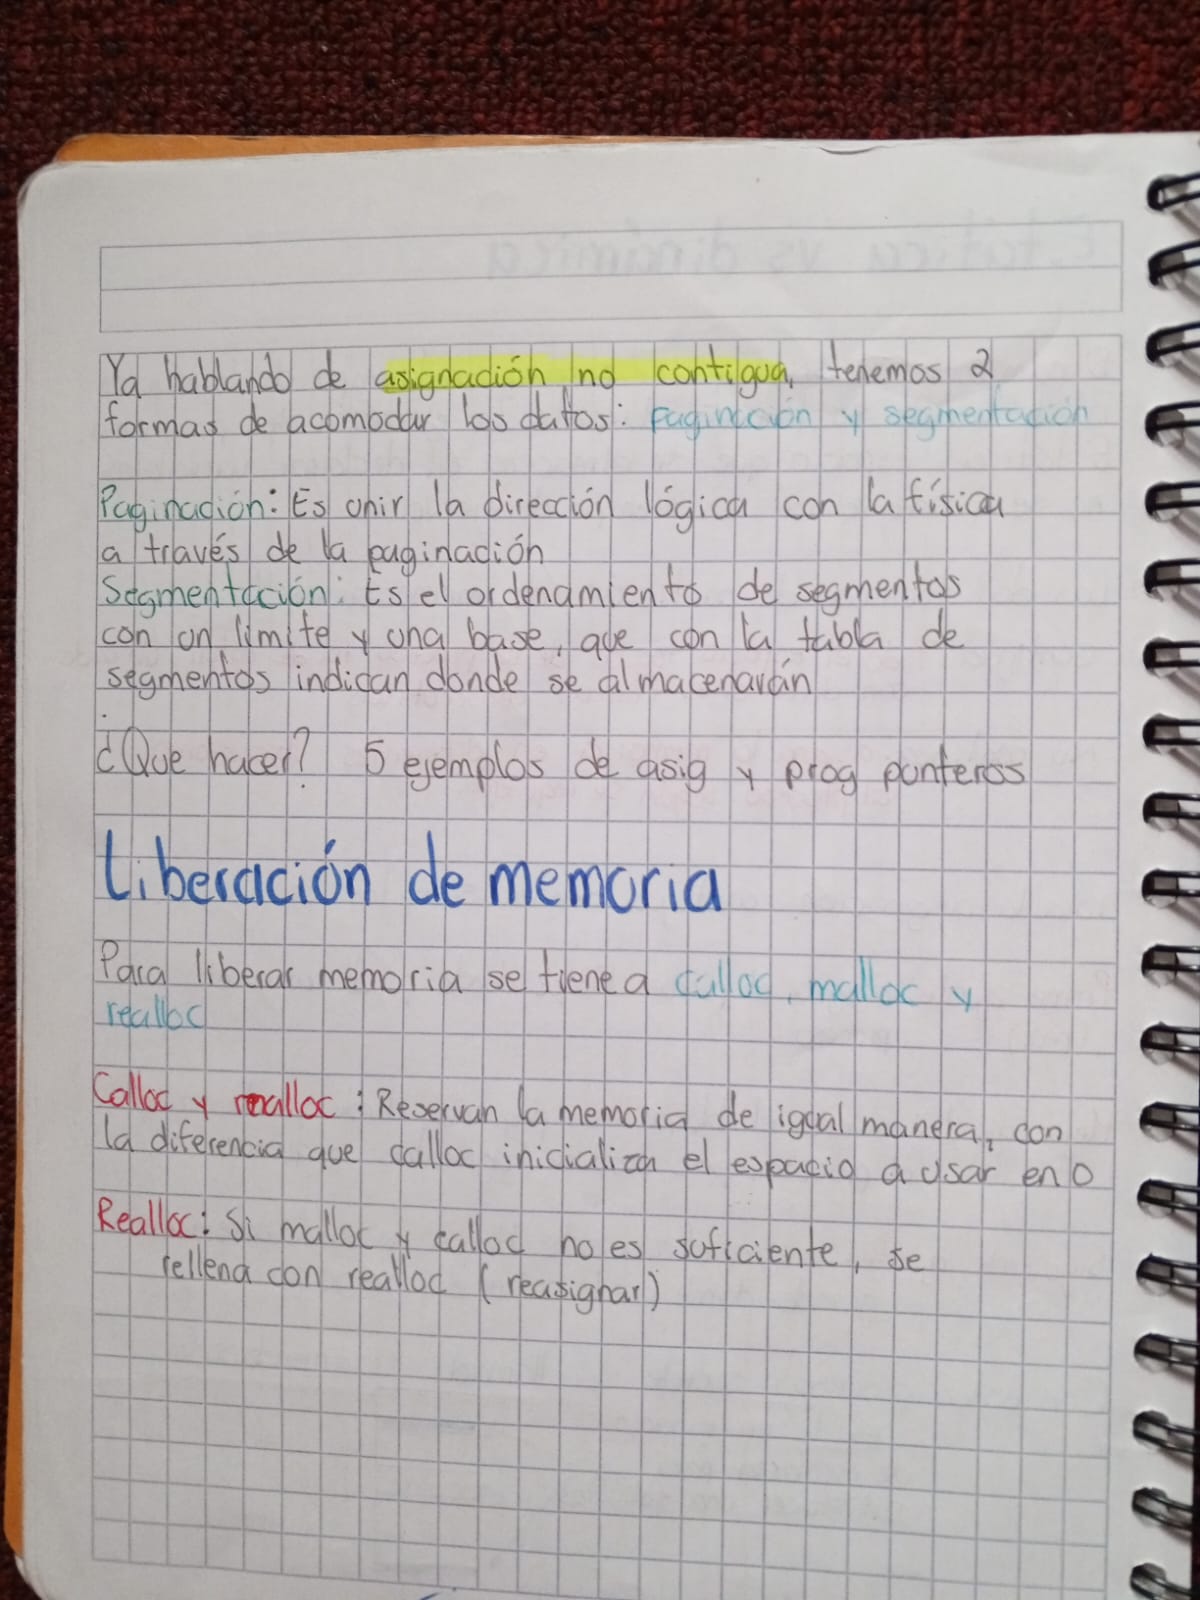 Ya hablando de asignación no contigua, tenemos 2
formas de acomodar los datos: Paginación y segmentación
Paginación: Es unir la dirección lógica con la física
a través de la paginación
Segmentación: Es el ordenamiento de segmentos
con un límite y una base, que con la tabla de
segmentos indican donde se almacenarán
¿Que hacer? 5 ejemplos de asig y prog punteros
Liberación de memoria
Para liberar memoria se tiene a calloc, malloc y
realloc
Calloc y malloc: Reservan la memoria de igual manera, con
la diferencia que calloc inicializa el espacio a usar en 0
Realloc: Si malloc y calloc no es suficiente, se
rellena con realloc (reasignar)